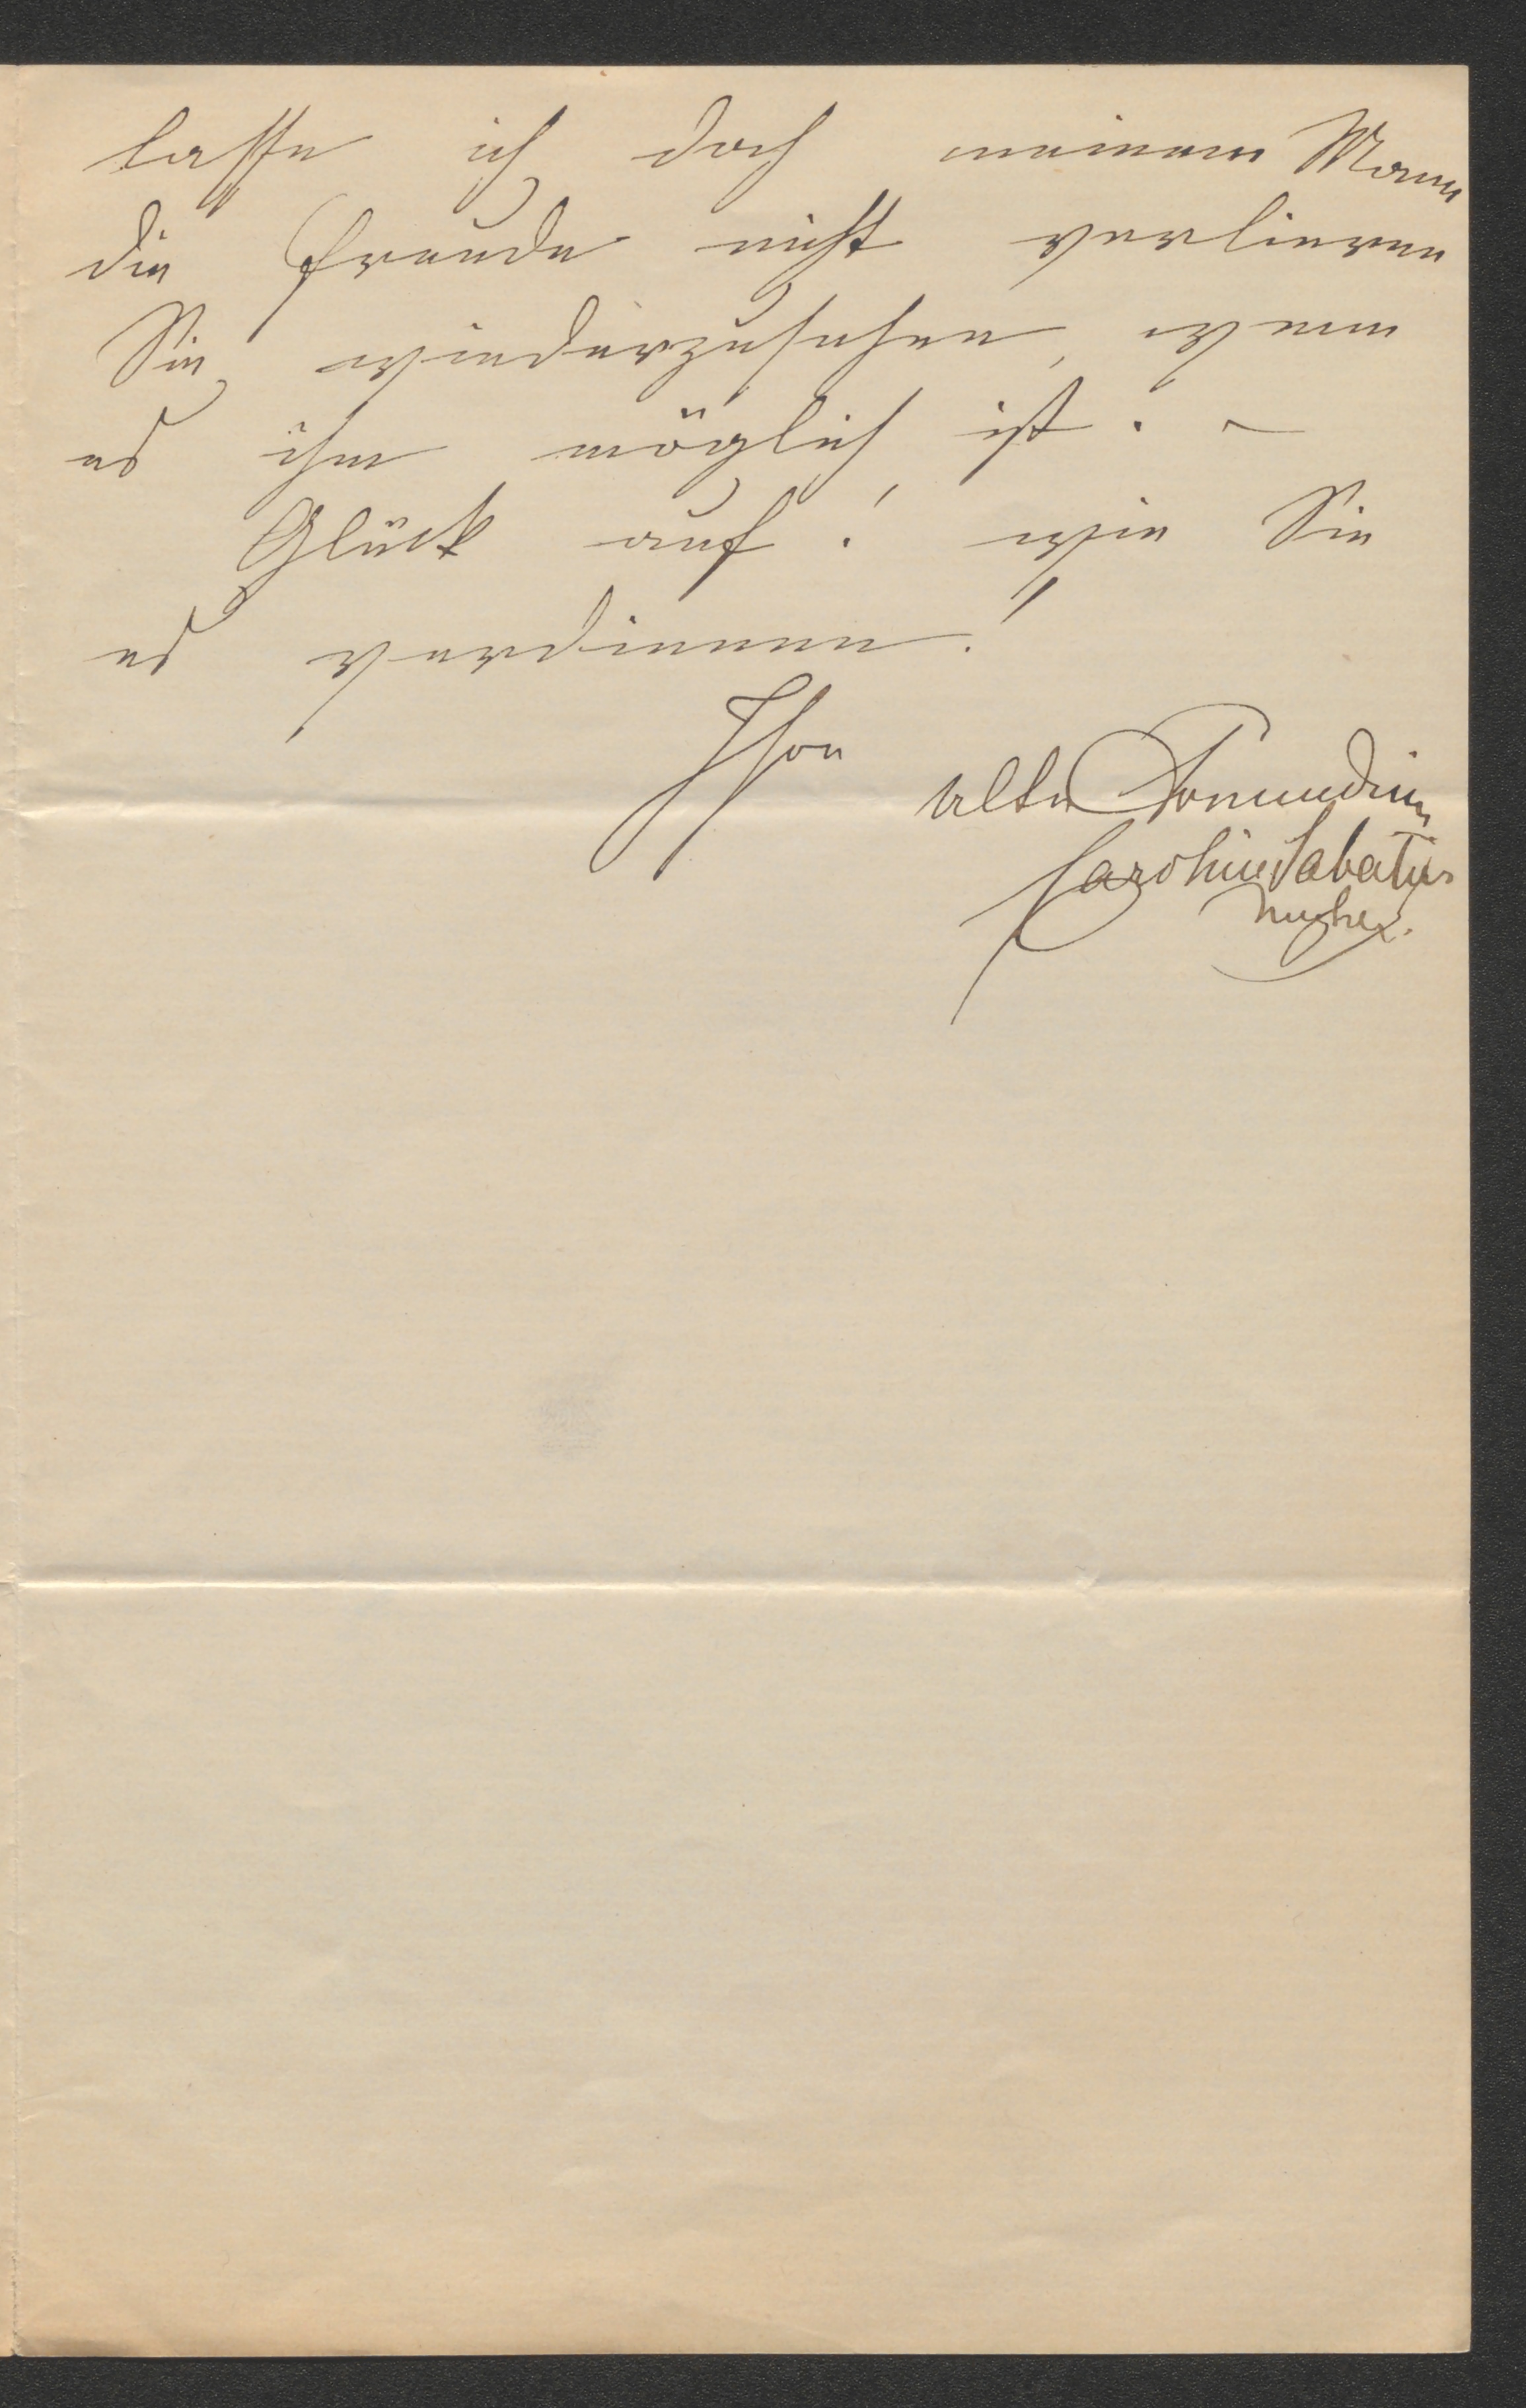 lasse ich doch meinem Mann
die Freude nicht verlieren
Sie wiederzusehen, wenn
es ihm möglich ist. –
Glück auf! wie Sie
es verdienen!
Ihre
alte Freundin
Caroline Sabatier
Ungher.